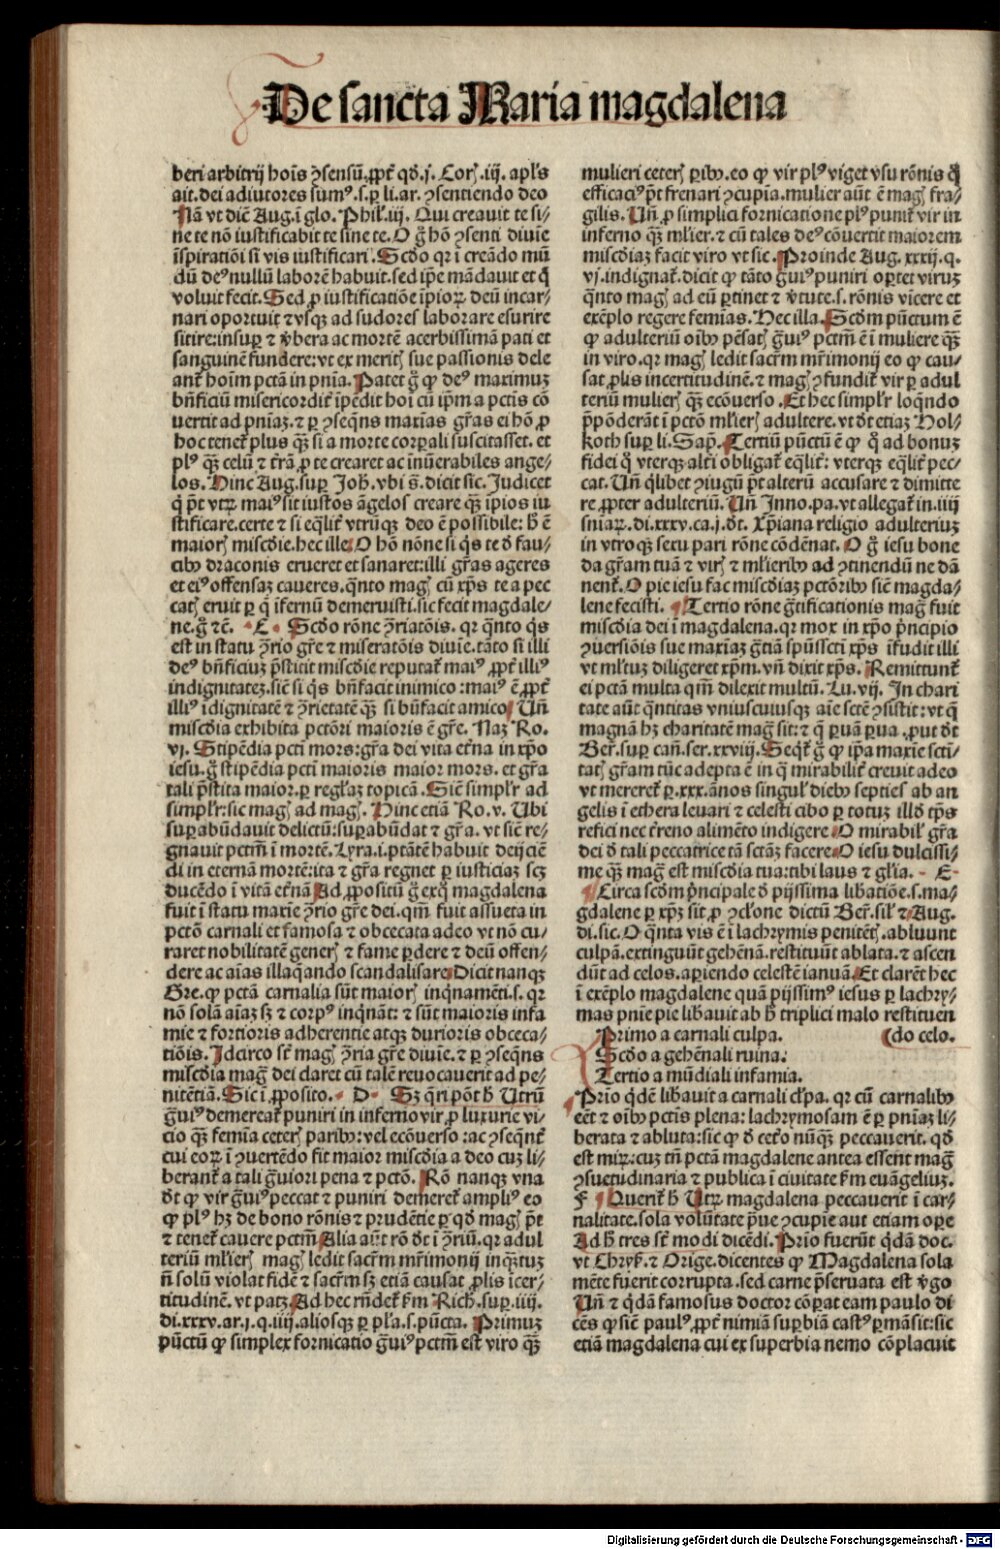 De sancta Maria magdalena
beri arbitrij hoīs ↄ̃sensū, ꝓpt̃ qd̓. j. Corꝭ. iij. apl's
ait. dei adiutores sumꝰ. s. ꝑ li. ar. ↄsentiendo deo
Nā vt dic̄ Aug. ī glo. Phil'. iij. Qui creauit te si/
ne te nō iustificabit te sine te. O g̃ hō ↄsenti diuīe
īspiratiōi si vis iustificari. Scd̓o qꝛ ī creādo mū
dū deꝰ nullū laborē habuit. sed ip̄e mādauit et q̄
voluit fecit. Sed ꝓ iustificatiōe īpioꝝ deū incar/
nari oportuit ⁊ vsqꝫ ad sudores laborare esurire
sitire: insuꝑ ⁊ v̓bera ac mortē acerbissimā pati et
sanguinē fundere: vt ex meritꝭ sue passionis dele
ant̃ hoīm pctā in pnīa. Patet g̃ ꝙ deꝰ maximuꝫ
bn̄ficiū misericordit̃ īpēdit hoī cū ip̄m a pctis cō
uertit ad pnīaꝫ. ⁊ ꝑ ↄseqn̄s maxīas gr̃as ei hō ꝓ
hoc tenet̃ plus qꝫ si a morte corꝑali suscitasset. et
plꝰ qꝫ celū ⁊ t̃rā ꝓ te crearet ac īnūerabiles ange/
los. Hinc Aug. suꝑ Joh̄. vbi s̄. dicit sic. Judicet
q̄ p̄t vtꝝ maiꝰ sit iustos āgelos creare qꝫ īpios iu
stificare. certe ⁊ si eq̄lit̃ vtrūqꝫ deo ē possibile: h̄ ē
maiorꝭ mis̄cdie. hec ille. O hō nōne si q̄s te d̓ fau/
cibꝰ draconis erueret et sanaret: illi gr̃as ageres
et eiꝰ offensaꝫ caueres. q̄nto magꝭ cū xp̄s te a pec
catꝭ eruit ꝑ q̄ īfernū demeruisti. sic fecit magdale/
ne. g̃ ⁊c̄. C Scd̓o rōne ↄ̃riatōis. qꝛ q̄nto q̄s
est in statu ↄ̃rio gr̃e ⁊ miseratōis diuīe. tāto si illi
deꝰ bn̄ficiuꝫ p̄sticit mis̄cdie reputat̃ maiꝰ ꝓpt̃ illiꝰ
indignitateꝫ. sic̄ si q̄s bn̄facit inimico: maiꝰ ē ꝓpt̃
illiꝰ īdignitatē ⁊ ↄ̃rietatē qꝫ si bn̄facit amico. Vn̄
mis̄cdia exhibita pctōri maioris ē gr̃e. Naꝫ Ro.
vj. Stipēdia pcti mors: gr̃a dei vita et̃na in xp̄o
iesu. g̃ stipēdia pcti maioris maior mors. et gr̃a
tali p̄stita maior. ꝑ regl'aꝫ topicā. Sic̄ simpl'r ad
simpl'r: sic magꝭ ad magꝭ. Hinc etiā Ro. v. Vbi
suꝑabūdauit delictū: suꝑabūdat ⁊ gr̃a. vt sic̄ re/
gnauit pctm̄ ī mortē. Lyra. i. ptātē habuit deijciē
di in eternā mortē: ita ⁊ gr̃a regnet ꝑ iusticiaꝫ scꝫ
ducēdo ī vitā et̃nā. Ad ꝓpositū g̃ ex q̄ magdalena
fuit ī statu maxīe ↄ̃rio gr̃e dei. qm̄ fuit assueta in
pctō carnali et famosa ⁊ obcecata adeo vt nō cu/
raret nobilitatē generꝭ ⁊ fame ꝑdere ⁊ deū offen/
dere ac aīas illaq̄ando scandalisare. Dicit nanqꝫ
Gre. ꝙ pctā carnalia sūt maiorꝭ inq̄namēti. s. qꝛ
nō solā aīaꝫ sꝫ ⁊ corpꝰ inq̄nāt: ⁊ sūt maioris infa
mie ⁊ fortioris adherentie atqꝫ durioris obceca/
tiōis. Idcirco st̃ magꝭ ↄ̃ria gr̃e diuīe. ⁊ ꝑ ↄseqn̄s
mis̄cdia mag̃ dei claret cū talē reuocauerit ad pe/
nitētiā. Sic ī ꝓposito. D Sꝫ q̄ri pōt h̄ Vtrū
g̃uiꝰ demereat̃ puniri in inferno vir ꝓ luxurie vi/
cio qꝫ femīa ceterꝭ paribꝰ: vel ecōuerso: ac ↄseqn̄t̃
cui eoꝝ ī ↄuertēdo fit maior mis̄cdia a deo cuꝫ li/
berant̃ a tali g̃uiori pena ⁊ pctō. Rō nanqꝫ vna
d̓t ꝙ vir g̃uiꝰ peccat ⁊ puniri demeret̃ ampliꝰ eo
ꝙ plꝰ hꝫ de bono rōnis ⁊ prudētie ꝑ qd̓ magꝭ p̄t
⁊ tenet̃ cauere pctm̄. Alia aūt rō d̓t ī ↄ̃riū. qꝛ adul
teriū ml'ierꝭ magꝭ ledit sacr̃m mr̃imonij inqꝫtuꝫ
n̄ solū violat fidē ⁊ sacr̃m sꝫ etiā causat ꝓlis īcer/
titudinē. vt patꝫ. Ad hec rn̄det̃ ẜm Rich̓. suꝑ. iiij.
di. xxxv. ar. j. q. iiij. aliosqꝫ ꝑ pl'a. s. pūcta. Primuꝫ
pūctū ꝙ simplex fornicatio g̃uiꝰ pctm̄ est viro qꝫ
mulieri ceterꝭ ꝑibꝰ. eo ꝙ vir plꝰ viget vsu rōnis q̄
efficaciꝰ p̄t frenari ↄcupīa. mulier aūt ē magꝭ fra/
gilis. Vn̄ ꝓ simplici fornicatione plꝰ punit̃ vir in
inferno qꝫ ml'ier. ⁊ cū tales deꝰ cōuertit maiorem
mis̄cdiaꝫ facit viro vt sic. Proinde Aug. xxxij. q.
vj. indignat̃. dicit ꝙ tāto g̃uiꝰ puniri oꝑtet viruꝫ
q̄nto magꝭ ad eū ꝑtinet ⁊ v̓tute. s. rōnis vīcere et
exēplo regere femīas. Hec illa. Scd̓m pūctum ē
ꝙ adulteriū oībꝰ pēsatꝭ g̃uiꝰ pctm̄ ē ī muliere qꝫ
in viro. qꝛ magꝭ ledit sacr̃m mr̃imonij eo ꝙ cau/
sat ꝓlis incertitudinē. ⁊ magꝭ ↄfundit̃ vir ꝑ adul
teriū mulierꝭ qꝫ ecōuerso. Et hec simpl'r loqn̄do
p̄pōderāt ī pctō ml'ierꝭ adultere. vt d̓t etiaꝫ Hol/
koth suꝑ li. Sap̄. Tertiū pūctū ē ꝙ q̄ ad bonuꝫ
fidei q̄ vterqꝫ alt̃i obligat̃ eq̄lit̃: vterqꝫ eq̄lit̃ pec/
cat. Vn̄ q̄libet ↄiugū p̄t alterū accusare ⁊ dimitte
re ꝓpter adulteriū. Vn̄ Inno. pa. vt allegat̃ in. iiij
sniaꝝ. di. xxxv. ca. j. d̓t. Xp̄iana religio adulteriuꝫ
in vtroqꝫ sexu pari rōne cōdēnat. O g̃ iesu bone
da gr̃am tuā ⁊ virꝭ ⁊ ml'ieribꝰ ad ↄtinendū ne dā
nent̃. O pie iesu fac mis̄cdiaꝫ pctōribꝰ sic̄ magda/
lene fecisti. Tertio rōne g̃tificationis mag̃ fuit
mis̄cdia dei ī magdalena. qꝛ mox in xp̄o p̄ncipio
ↄuersiōis sue maxīaꝫ g̃tiā spūssct̄i xp̄s īfudit illi
vt ml'tuꝫ diligeret xp̄m. vn̄ dixit xp̄s. Remittunt̃
ei pctā multa qm̄ dilexit multū. Lu. vij. In chari
tate aūt q̄ntitas vniuscuiusqꝫ aīe sct̄ē ↄsistit: vt q̄
magnā hꝫ charitatē mag̃ sit: ⁊ q̄ ꝑuā ꝑua, ꝓut d̓t
Ber̃. suꝑ can̄. ser. xxviij. Seqt̃ g̃ ꝙ ip̄a maxīe sctī/
tatꝭ gr̃am tūc adepta ē in q̄ mirabilit̃ creuit adeo
vt mereret̃ ꝑ. xxx. ānos singul' diebꝰ septies ab an
gelis ī ethera leuari ⁊ celesti cibo ꝑ totuꝫ illd̓ tp̄s
refici nec t̃reno alimēto indigere. O mirabil' gr̃a
dei d̓ tali peccatrice tā sctāꝫ facere. O iesu dulcissi/
me qꝫ mag̃ est mis̄cdia tua: tibi laus ⁊ gl'ia. E
Circa scd̓m p̄ncipale d̓ pijssima lib̓atiōe. s. ma/
gdalene ꝑ xp̄ꝫ sit ꝓ ↄclōne dictū Ber̃. sil' ⁊ Aug.
di. sic. O q̄nta vis ē ī lachrymis penitētꝭ. abluunt
culpā. extinguūt gehēnā. restituūt ablata. ⁊ ascen
dūt ad celos. aꝑiendo celestē ianuā. Et claret hec
ī exēplo magdalene quā pijssimꝰ iesus ꝑ lachry/
mas pnīe pie lib̓auit ab h̄ triplici malo restituen
Primo a carnali culpa. (do celo.
Scd̓o a gehēnali ruina.
Tertio a mūdiali infamia.
Prīo q̄dē lib̓auit a carnali cl'pa. qꝛ cū carnalibꝰ
eēt ⁊ oībꝰ pctis plena: lachrymosam ē ꝑ pnīaꝫ li/
berata ⁊ abluta: sic ꝙ d̓ cet̃o nūqꝫ peccauerit. qd̓
est miꝝ. cuꝫ tn̄ pctā magdalene antea essent mag̃
ↄsuetudinaria ⁊ publica ī ciuitate ẜm euāgeliuꝫ.
F Querit̃ h̄ Vtꝝ magdalena peccauerit ī car/
nalitate. sola volūtate p̄ue ↄcupīe aut etiam oꝑe
Ad h̄ tres st̃ modi dicēdi. Prīo fuerūt q̄dā doc.
vt Chryẜ. ⁊ Orige. dicentes ꝙ Magdalena sola
mēte fuerit corrupta. sed carne p̄seruata est v̓go
Vn̄ ⁊ q̄dā famosus doctor cōꝑat eam paulo di
cēs ꝙ sic̄ paulꝰ ꝓpt̃ nimiā suꝑbiā castꝰ ꝑmāsit: sic
etiā magdalena cui ex superbia nemo cōplacuit
Digitalisierung gefördert durch die Deutsche Forschungsgemeinschaft - DFG